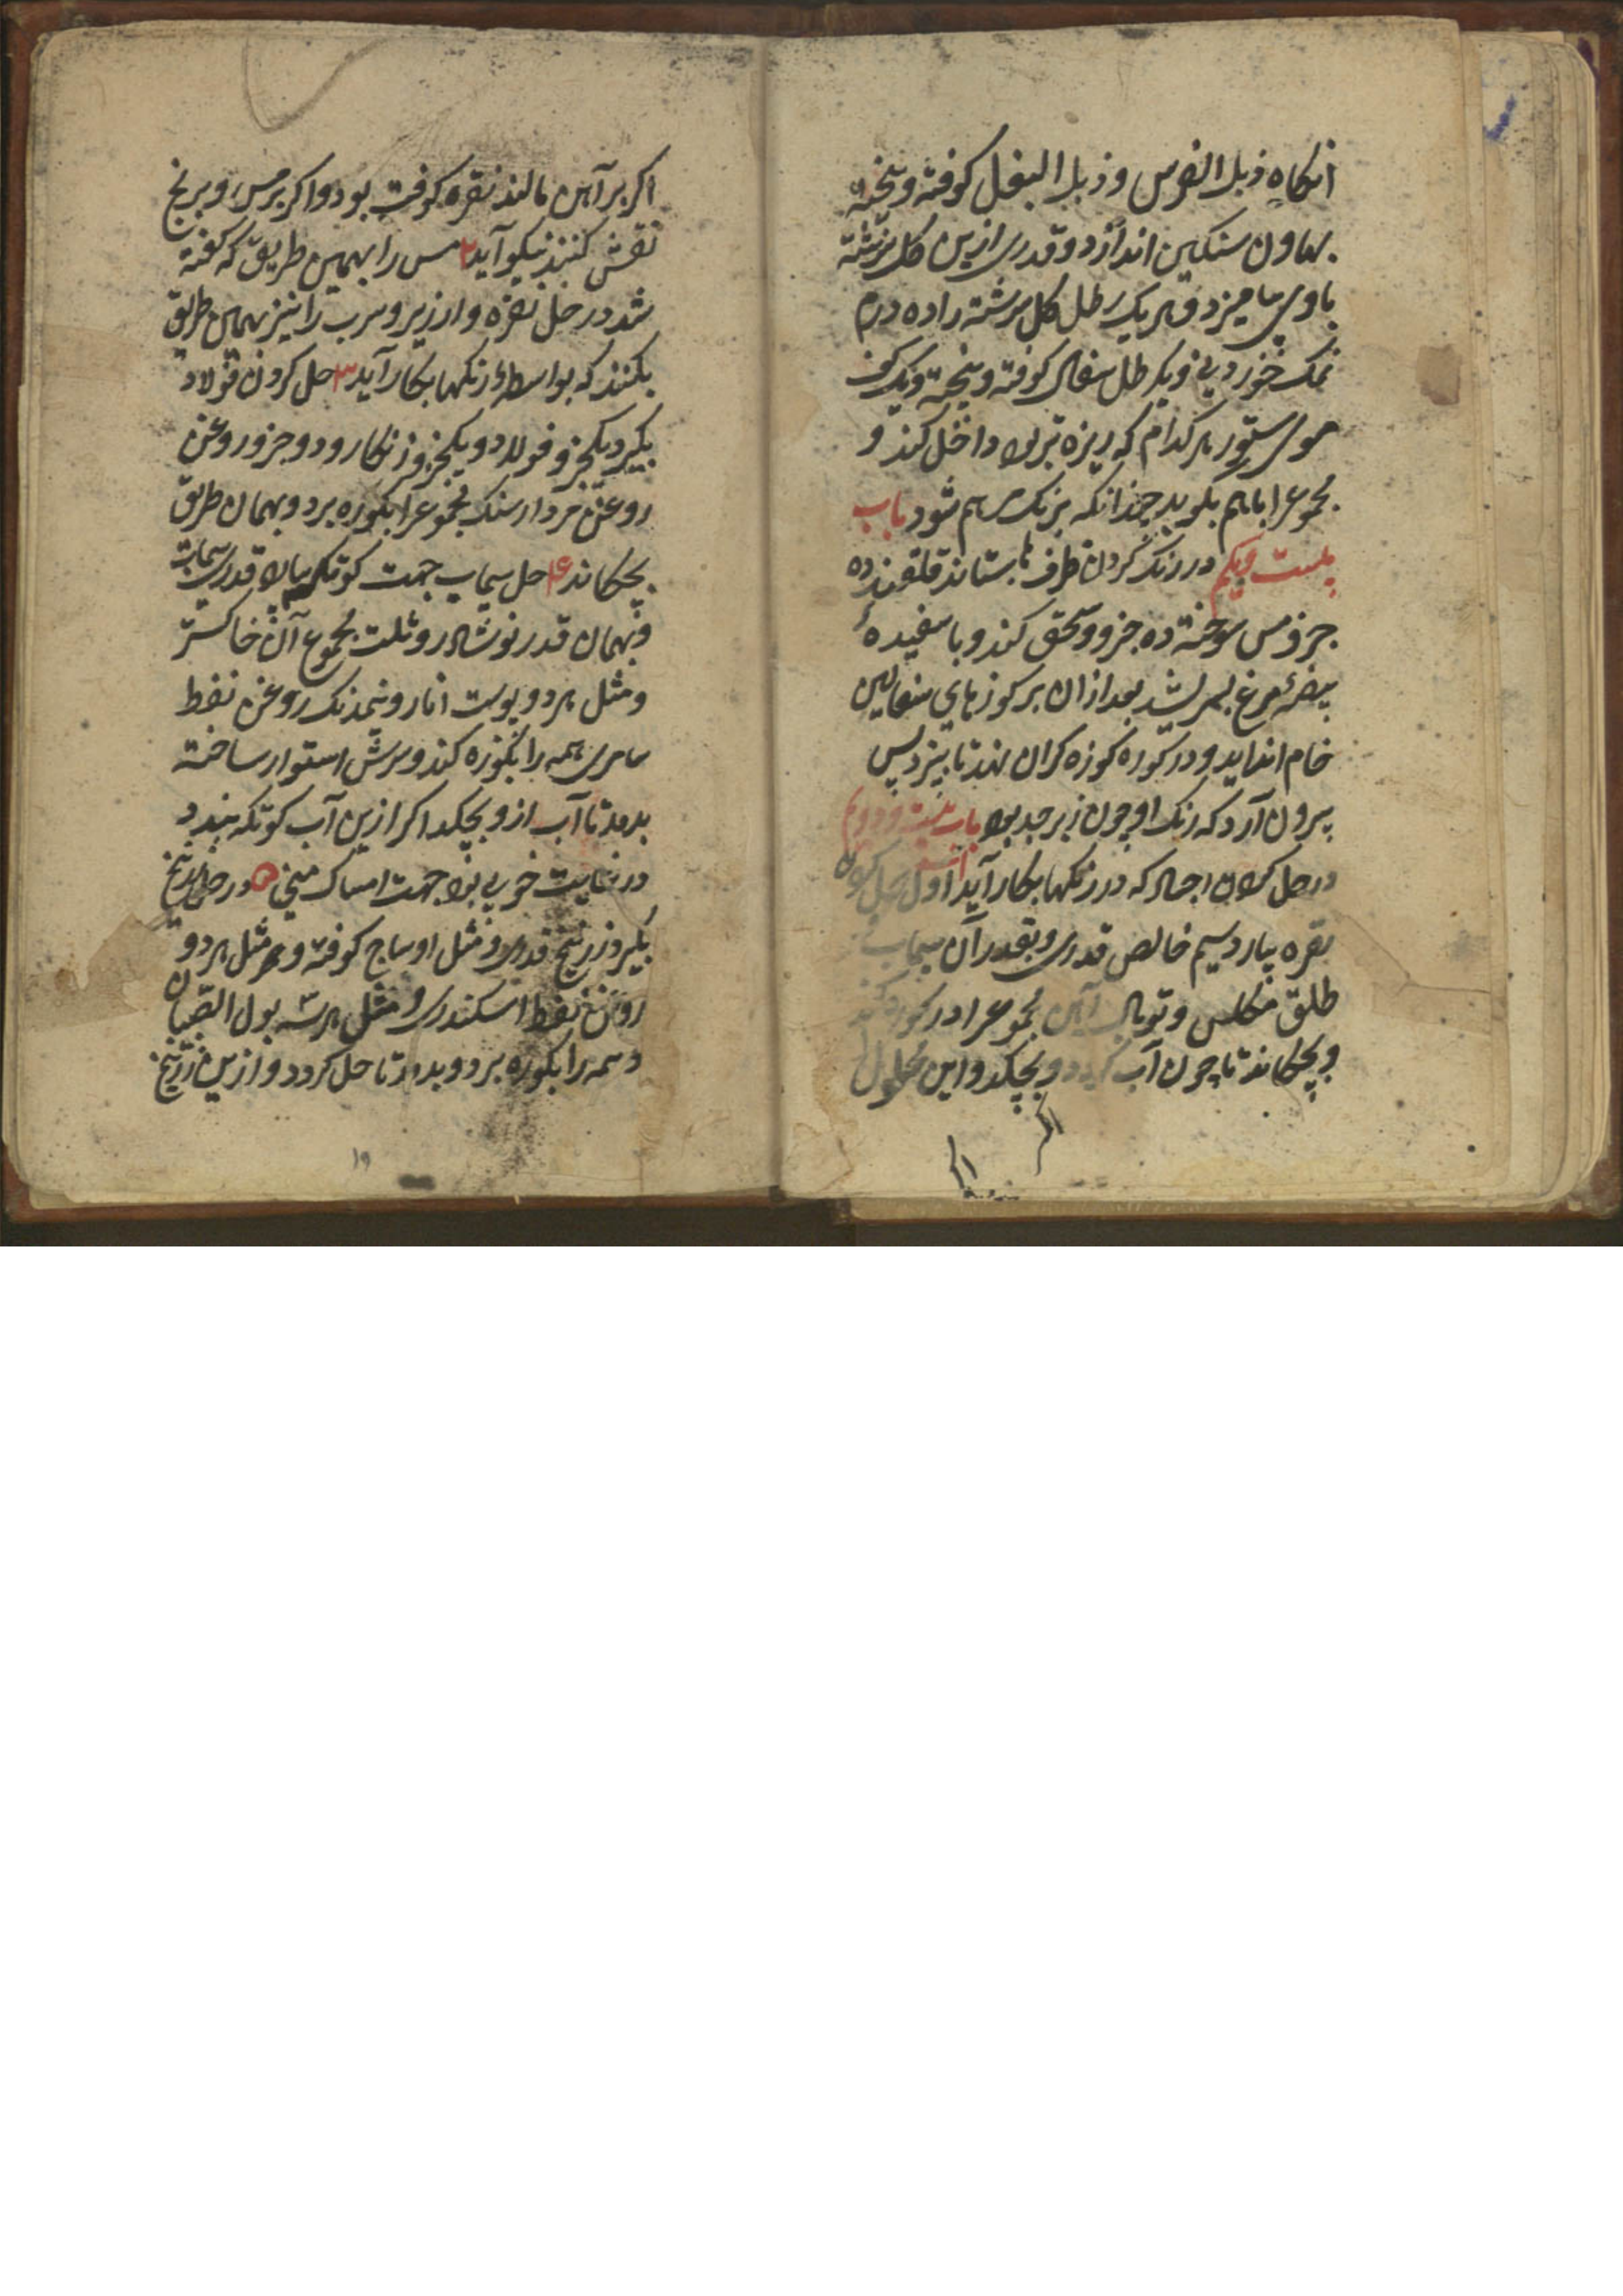 انکاه زبل الفرس و زبل البغل کوفته و بیخته
بهاون سنکین اندازد و قدری ازین کل سرشته
باوی بیامیزد و هر یک رطل کل سرشته را ده درم
نمک خوردنی و یک رطل سفال کوفته و بیخته و یک کف
موی ستور هر کدام که ریزه تر بود داخل کند و
مجموعرا باهم بکوبد چندانکه برنک مرهم شود باب
بیست و یکم در رنک کردن ظرفها بستاند قلقند ده
جزو مس سوخته ده جزو و سحق کند و با سفیدهٔ
بیضهٔ مرغ بسرشد بعد ازان بر کوزهای سفالین
خام انداید و در کوره کوزه کران نهد تا بپزد پس
بیرون آرد که رنک او چون زبرجد بود باب بیست و دوم
در حل کردن اجساد که در رنکها بکار آید اول حل کردن
نقره بیارد سیم خالص قدری و بقدر آن سیماب
طلق مکلس و توبال آهن مجموعرا در کوره کند
و بچکاند تا چون آب کردد و بچکد و این محلول
اکر
اکر
اکر بر آهن مالند نقره کوفت بود و اکر بر مس و برنج
نقش کنند نیکو آید ۲ مس را بهمین طریق که کفته
شد در حل نقره و ارزیر و سرب را نیز بهمین طریق
بکنند که بواسطهٔ رنکها بکار آید ۳ حل کردن فولاد
بکیرد یکجزو فولاد و یکجزو زنکار و دو جزو روغن
روغن مردارسنک مجموعرا بکوره برد و بهمان طریق
بچکاند ۴ حل سیماب جهت کوتکه بیالاد قدری سیماب
و بهمان قدر نوشادر و ثلث مجموع آن خاکستر
و مثل هر دو پوست انار و نیمدنک روغن نفط
سامری همه را بکوزه کند و سرش استوار ساخته
بدمد تا آب ازو بچکد اکر ازین آب کوتکه بندد
در نهایت خوبی بود جهت امساک منی ۵ در حل زرنیخ
بکیرد زرنیخ قدری و مثل او ساج کوفته و مثل هر دو
روغن نفط اسکندری و مثل هر سه بول الصبیان
و همه را بکوره برد و بدمد تا حل کردد و ازین زرنیخ
۱۹